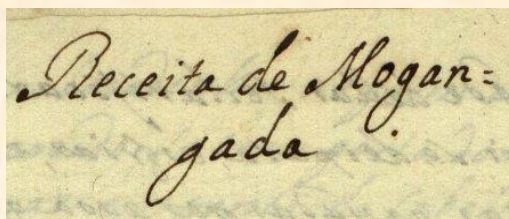 Receita de Mogan=
gada.